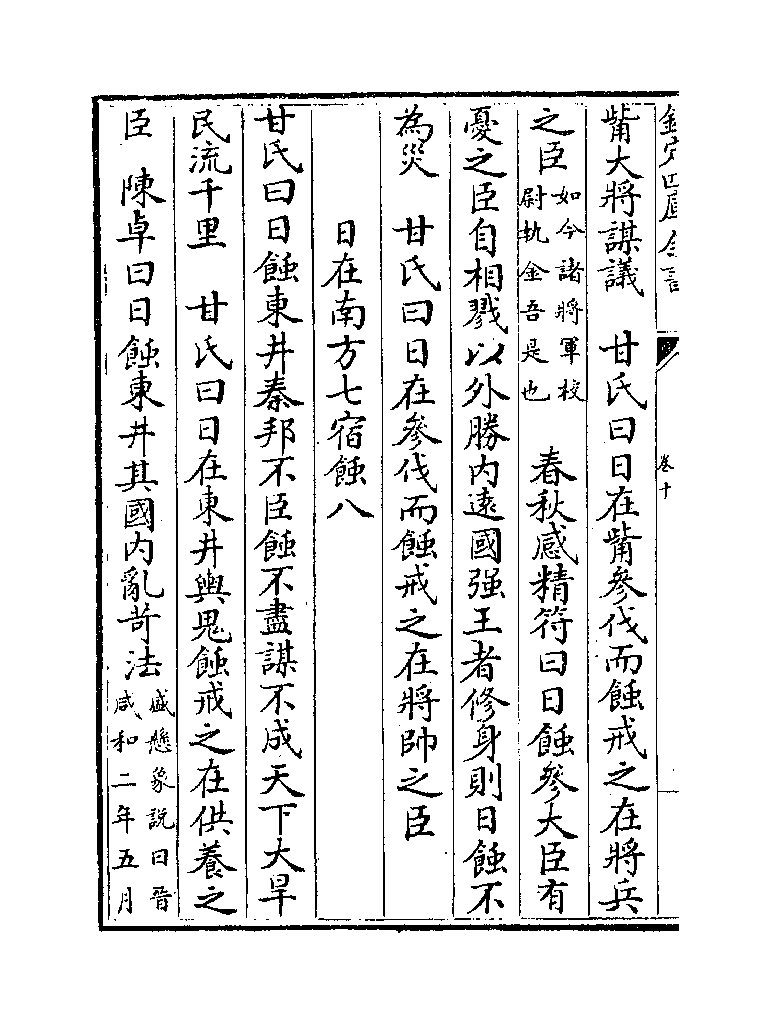 欽定四庫全書
卷十
觜大將謀議　甘氏曰日在觜參伐而蝕戒之在將兵
之臣如今諸將軍校尉執金吾是也　春秋感精符曰日蝕參大臣有
憂之臣自相戮以外勝内遠國强王者修身則日蝕不
為災　甘氏曰日在參伐而蝕戒之在將帥之臣
日在南方七宿蝕八
甘氏曰日蝕東井秦邦不臣蝕不盡謀不成天下大旱
民流千里　甘氏曰日在東井輿鬼蝕戒之在供養之
臣　陳卓曰日蝕東井其國内亂苛法盛懸象説曰晉咸和二年五月